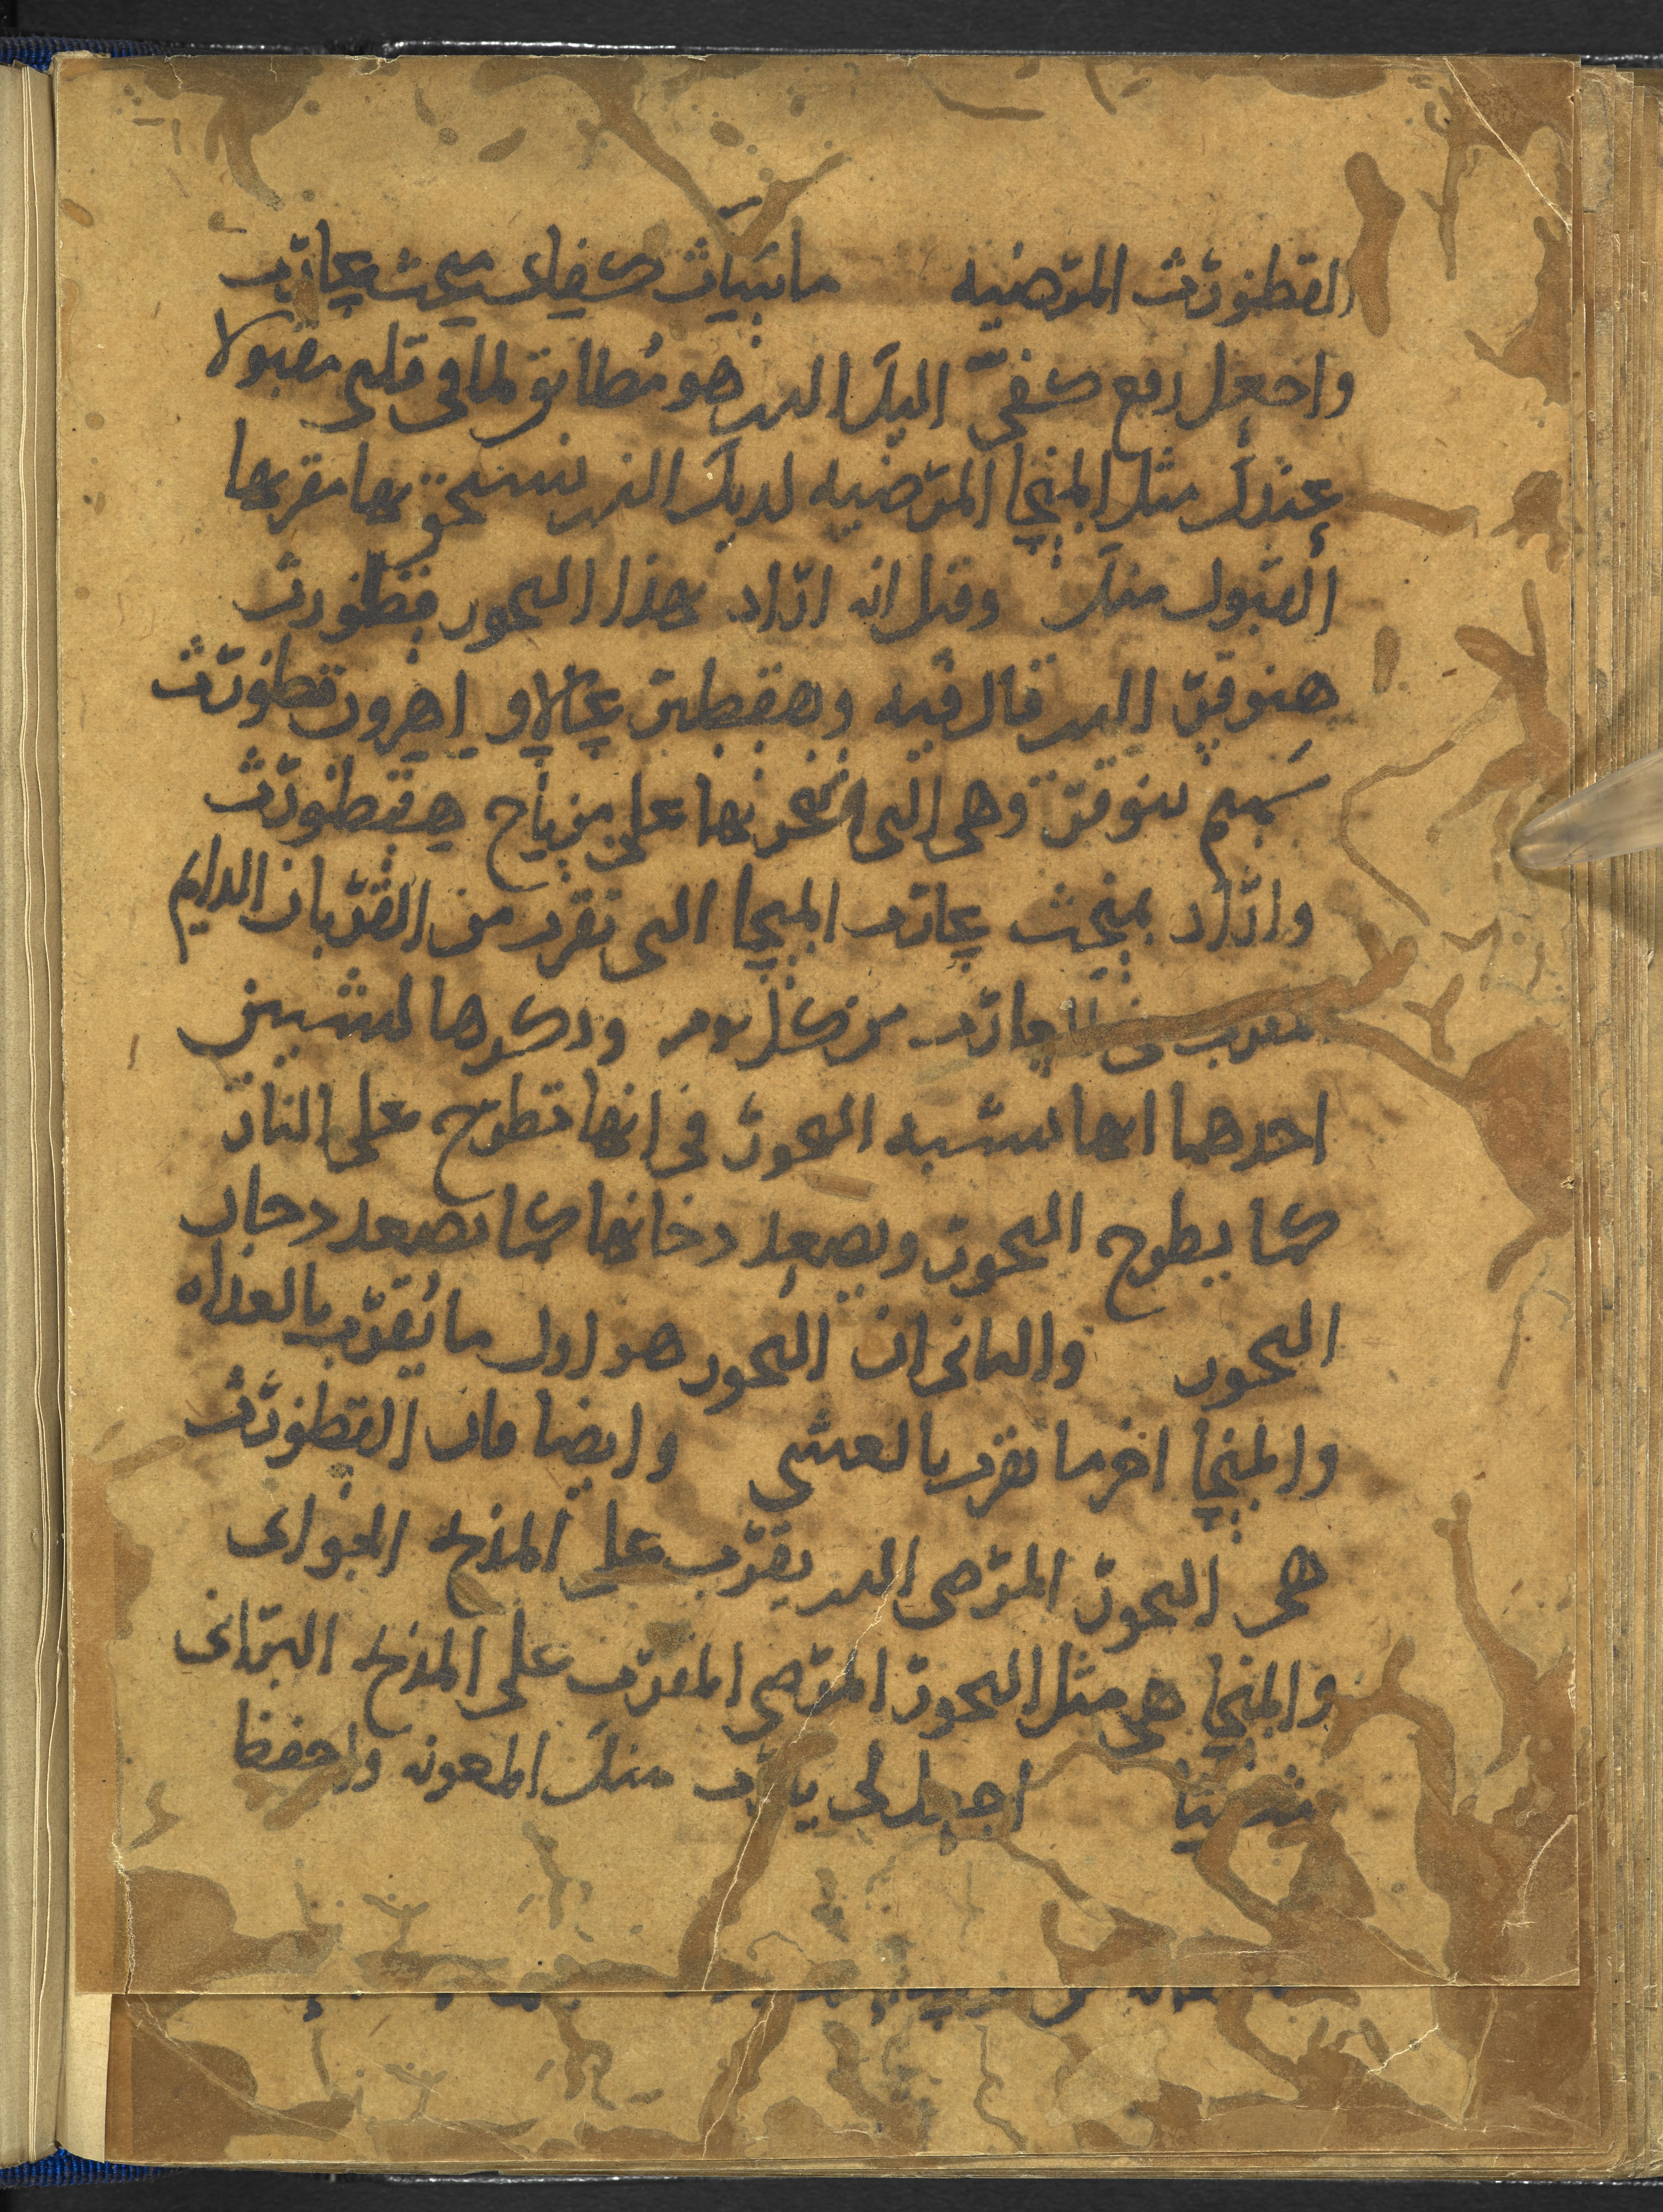 القطورث المرضيه ماسيات كفاى منحث عارب
واجعل رفع كفىّ اليك الدى هو مُطابق لما فى قلبى مقبولا
عندك مثل المنحا المرضيه لديك الذى نستحق بها مقربها
القبول منك وقيل انه اراد بهذا البخور قطورث
هبوقر الدى قال فيه وهقطير عالاو اهرون قطورث
سميم ببوقر وهى التى تبخر بها على مزباح هقطورث
واراد بمنحث عارب المنحا التى تقرب من القربان الدايم
عارب من كل يوم ودكرها لشيين
احدهما انها تشبه البخور فى انها تطرح على النار
كما يطرح البخور ويصعد دخانها كما يصعد دخان
البخور والثانى ان البخور هو اول ما يُقرّب بالغداه
والمنحا اخر ما يقرب بالعشى وايضا فان القطورث
هى البخور المرضى الدى يقرّب على المذبح الجوانى
والمنحا هى مثل البخور المرضى المقرب على المذبح البرانى
اجعل لى يا رب منك المعونه واحفظ